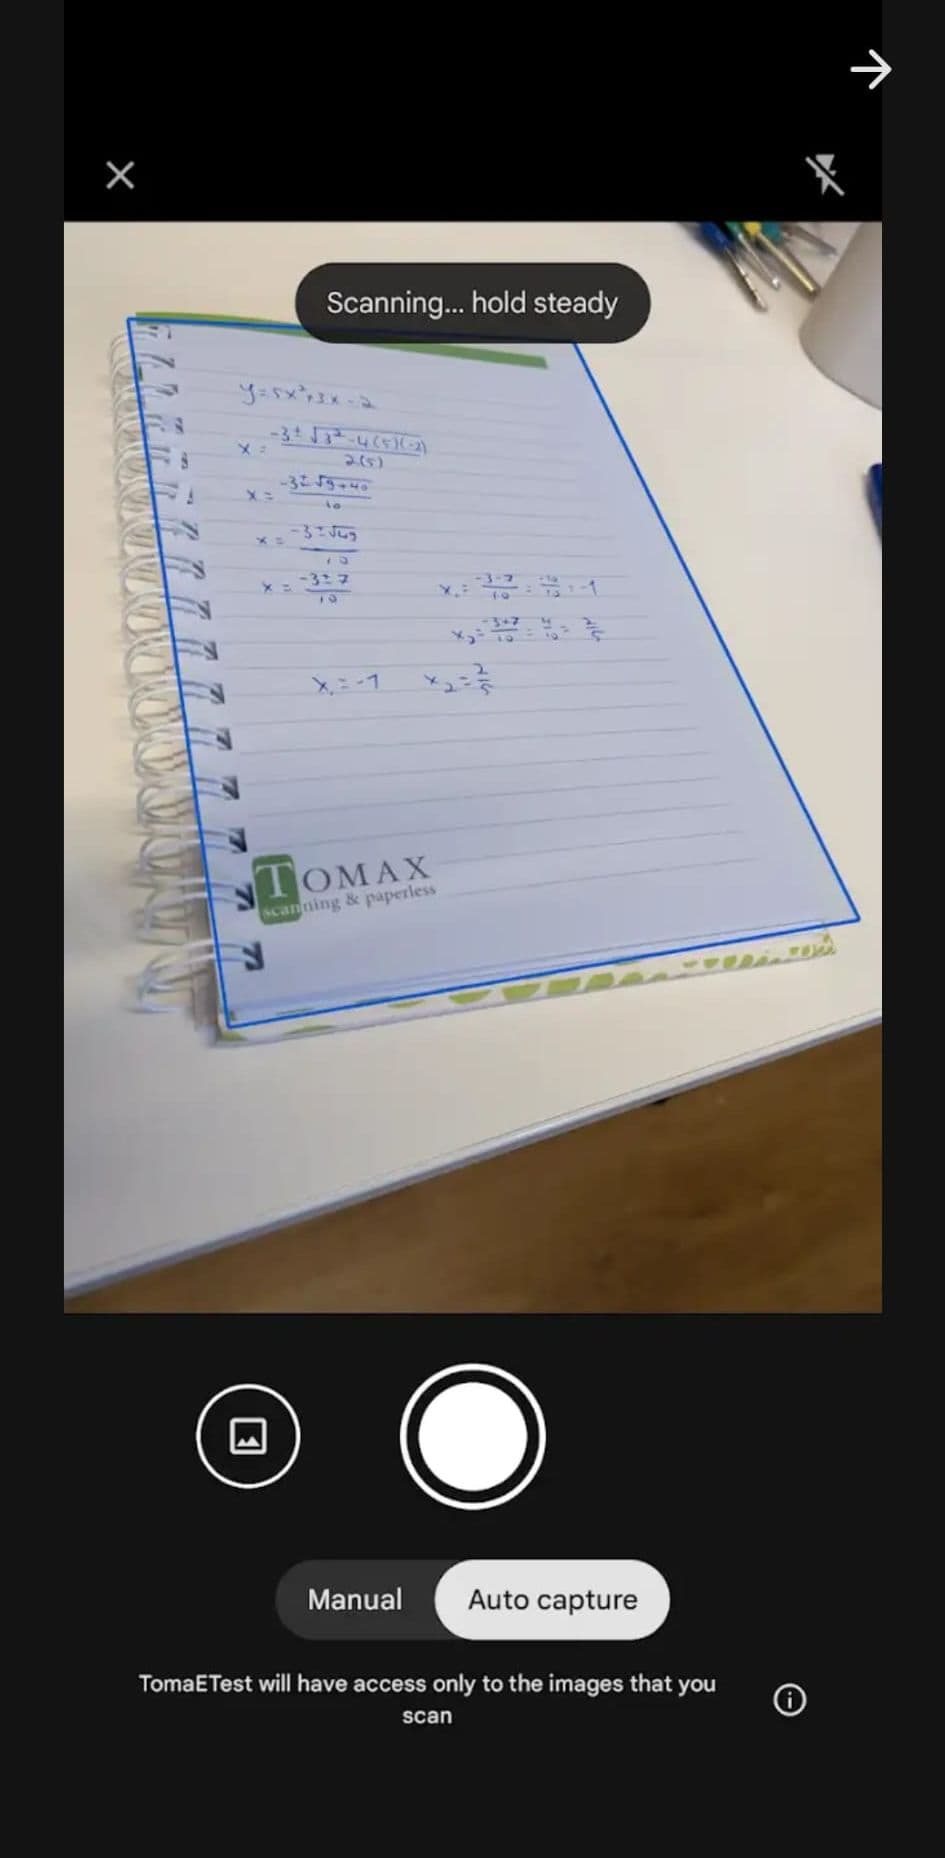 Scanning... hold steady
y=5x²+3x-2
x = (-3±√(3²-4(5)(-2)))/2(5)
x = (-3±√(9+40))/10
x = (-3±√49)/10
x = (-3±7)/10
x₁ = (-3-7)/10 = -10/10 = -1
x₂ = (-3+7)/10 = 4/10 = 2/5
x₁=-1 x₂=2/5
TOMAX
scanning & paperless
Manual
Auto capture
TomaETest will have access only to the images that you
scan